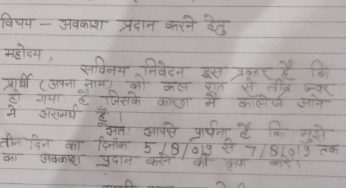 विषय - अवकाश प्रदान करने हेतु
महोदय,
सविनय निवेदन इस प्रकार है कि
प्रार्थी (अपना नाम) को कल रात से तीव्र ज्वर
हो गया है जिसके कारण मैं कालेज आने
में असमर्थ हूँ।
अतः आपसे प्रार्थना है कि मुझे
तीन दिन का दिनांक 5/8/019 से 7/8/019 तक
का अवकाश प्रदान करने की कृपा करें।